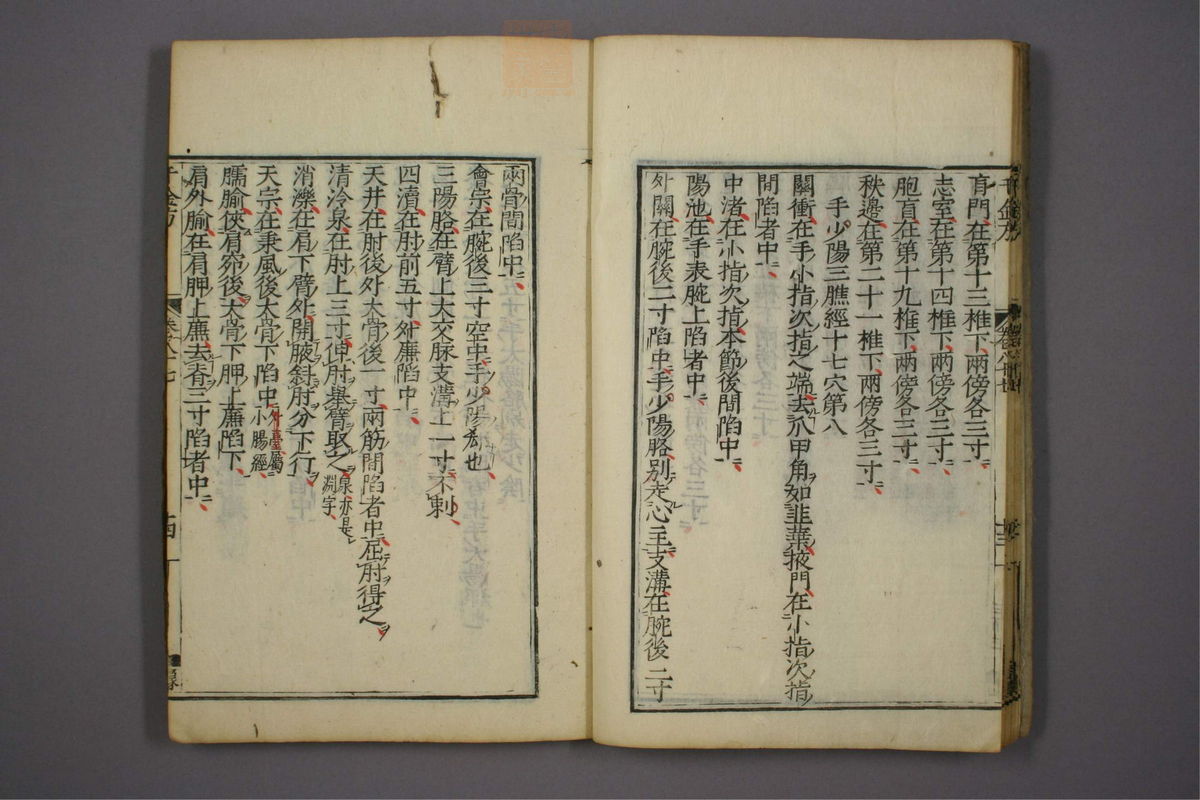 肓門在第十三椎下兩傍各三寸
志室在第十四椎下兩傍各三寸
胞肓在第十九椎下兩傍各三寸
秩邊在第二十一椎下兩傍各三寸
手少陽三膲經十七穴第八
關衝在手小指次指之端去爪甲角如韭葉掖門在小指次指
間陷者中
中渚在小指次指本節後間陷中
陽池在手表腕上陷者中
外關在腕後二寸陷中手少陽胳別走心主支溝在腕後二寸
兩骨間陷中
會宗在腕後三寸空中手少陽郄也
三陽胳在臂上大交脉支溝上一寸不刺
四瀆在肘前五寸外廉陷中
天井在肘後外大骨後一寸兩筋間陷者中屈肘得之
清冷泉在肘上三寸伸肘舉臂取之泉亦是淵字
消濼在肩下臂外開腋斜肘分下行
天宗在秉風後大骨下陷中外臺屬小腸經
臑腧俠肩窌後大骨下胛上廉陷下
肩外腧在肩胛上廉去脊三寸陷者中